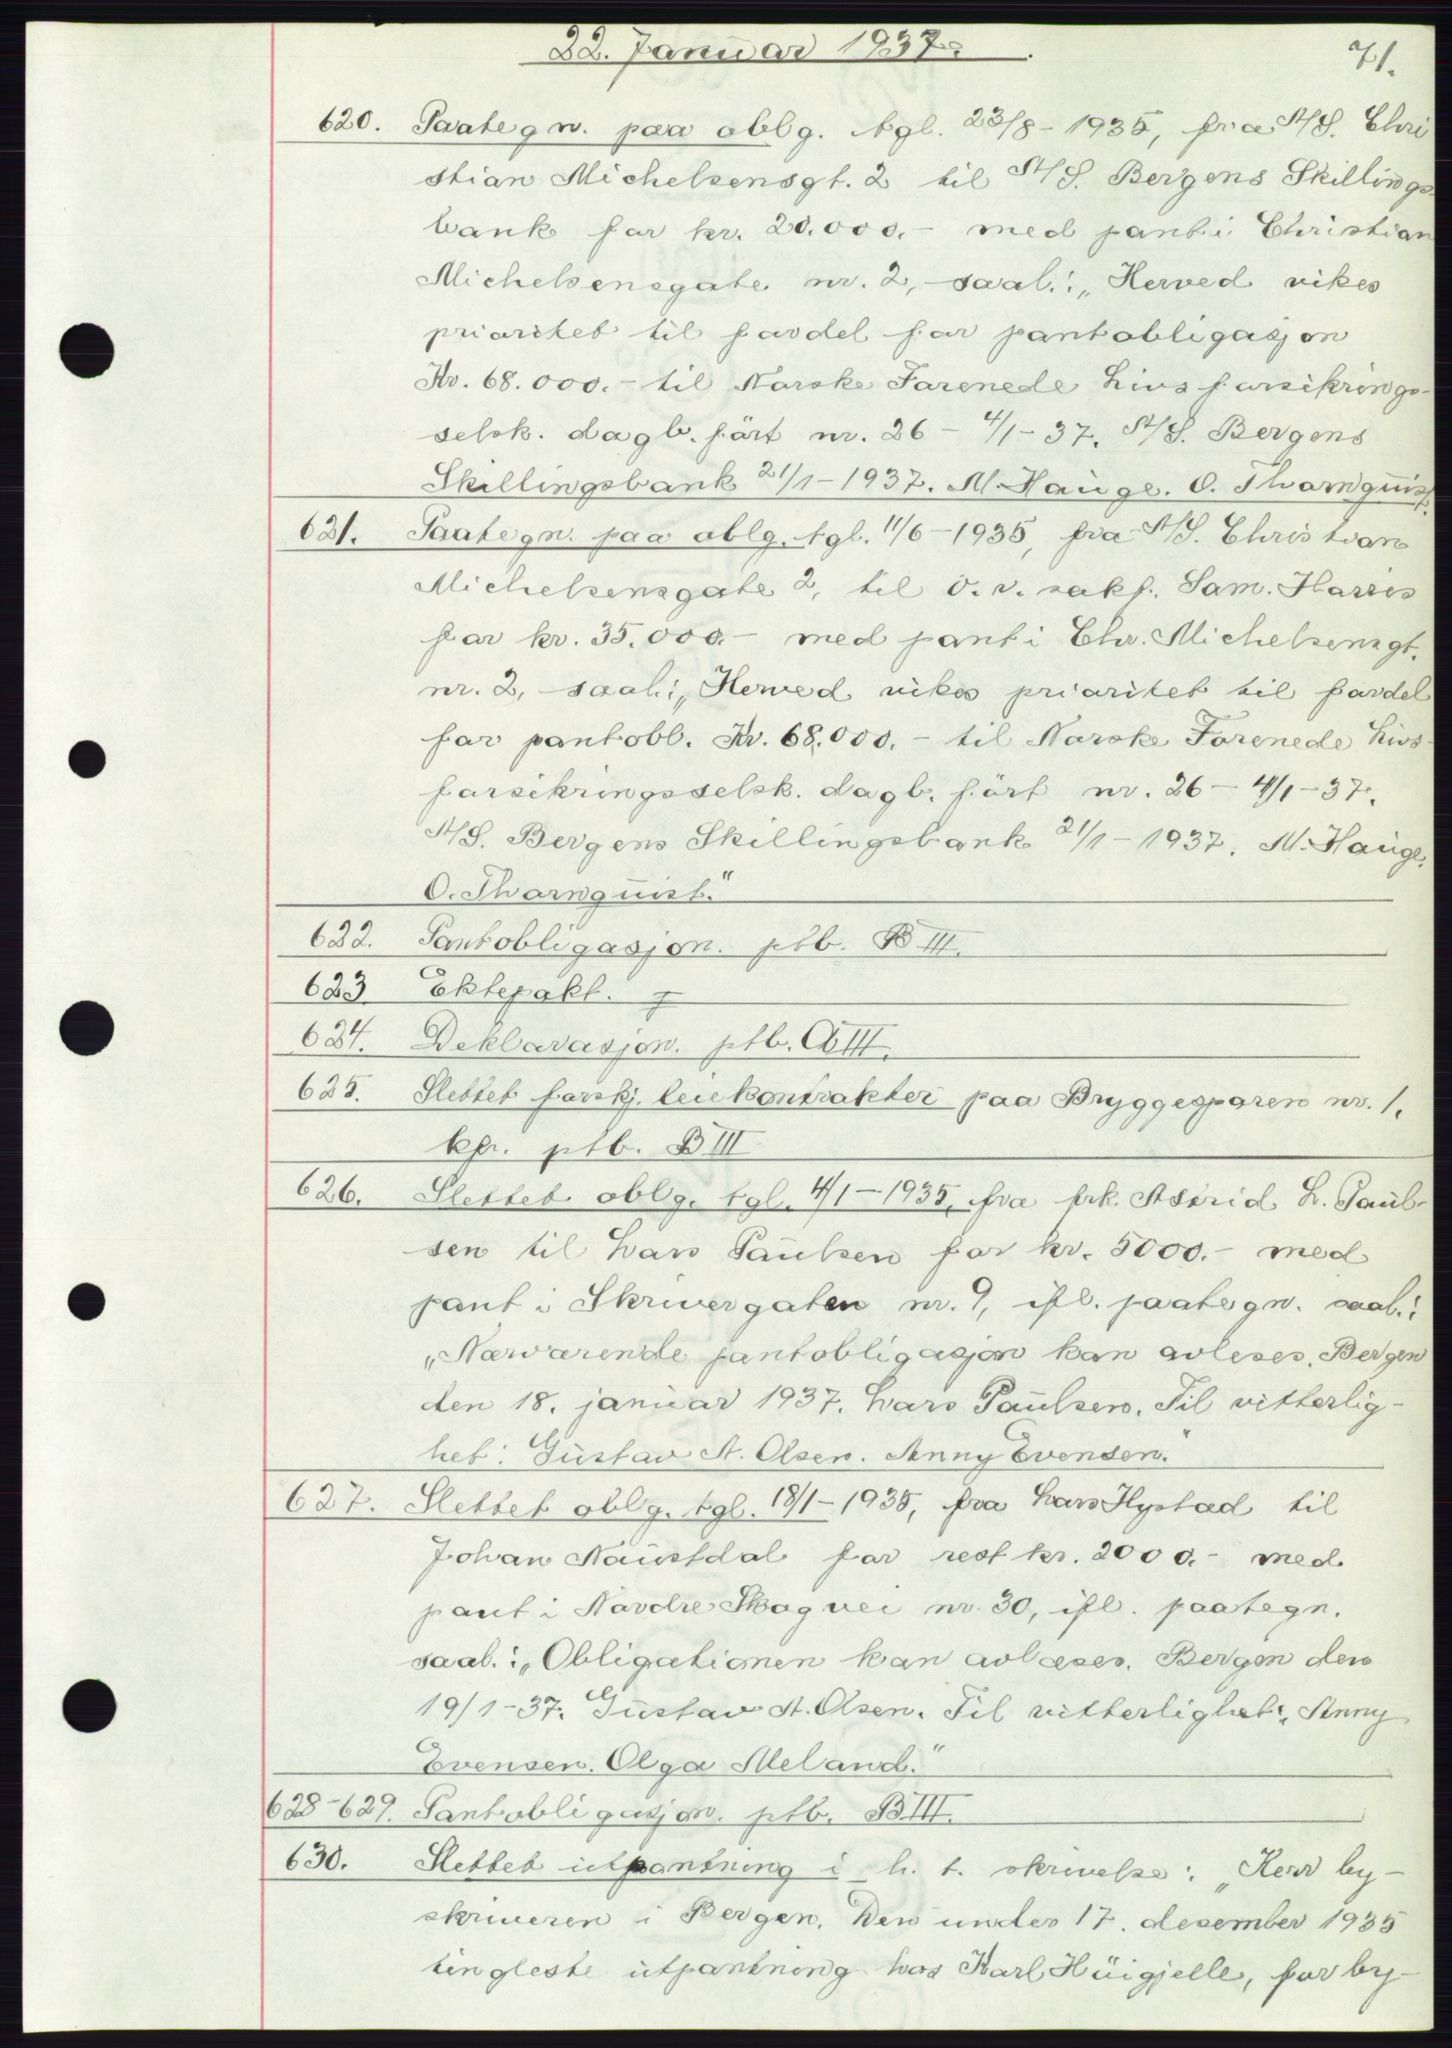 22. Januar 1937.
71.
620. Paategn. paa oblg. tgl. 23/8-1935, fra A/S. Chri
stian Michelsensgt. 2 til A/S. Bergens Skillings-
bank for kr. 20.000.- med pant i Christian
Michelsensgate nr. 2, saal.: „Herved vikes
prioritet til fordel for pantobligasjon
Kr. 68.000.- til Norske Forenede Livsforsikrings-
selsk. dagb. ført nr. 26 - 4/1-37. A/S. Bergens
Skillingsbank 21/1-1937. M. Hauge. O. Thornquist.
621. Paategn. paa oblg. tgl. 11/6-1935, fra A/S. Christian
Michelsensgate 2, til o.r. sakf. Sam. Harris
for kr. 35.000.- med pant i Chr. Michelsensgt.
nr. 2, saal.: „Herved vikes prioritet til fordel
for pantobl. Kr. 68.000.- til Norske Forenede Livs-
forsikringsselsk. dagb. ført nr. 26 - 4/1-37.
A/S. Bergens Skillingsbank 21/1-1937. M. Hauge.
O. Thornquist."
622. Pantobligasjon. ptb. B III.
623 Ektepakt. 7
624. Deklarasjon. ptb. A III.
625. Slettet forskj. leiekontrakter paa Bryggesporen nr. 1.
kfr. ptb. B III
626. Slettet oblg. tgl. 4/1-1935, fra frk. Astrid L. Paul-
sen til Lars Paulsen for kr. 5000.- med
pant i Skrivergaten nr. 9, ifl. paategn. saal.:
„Nærværende pantobligasjon kan avleses. Bergen
den 18. januar 1937. Lars Paulsen. Til vitterlig-
het: Gustav A. Olsen. Anny Evensen."
627. Slettet oblg. tgl. 18/1-1935, fra Lars Hystad til
Johan Naustdal for rest kr. 2000.- med
pant i Nordre Skogvei nr. 30, ifl. paategn.
saal.: „Obligationen kan avlæses. Bergen den
19/1-37. Gustav A. Olsen. Til vitterlighet: Anny
Evensen. Olga Meland."
628-629. Pantobligasjon. ptb. B III.
630. Slettet utpantning i h. t. skrivelse: „Herr by-
skriveren i Bergen. Den under 17. desember 1935
tingleste utpantning hos Karl Huigjelle, for by-